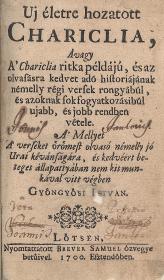 Uj életre hozatott
CHARICLIA,
Avagy
A' Chariclia ritka példájú, és az
olvasásra kedvet adó historiájának
némelly régi versek rongyábúl,
és azoknak sok fogyatkozásibúl
ujabb, és jobb rendben
vétele.
A' Mellyet
A' verseket örömest olvasó némelly jó
Urai kévánságára, és kedvéért be-
teges állapattyában nem kis mun-
kával vitt végben
GYÖNGYÖSI ISTVAN.
LŐTSEN,
Nyomtattatott BREVER SAMUEL özvegye
betűivel. 1700. Esztendőben.